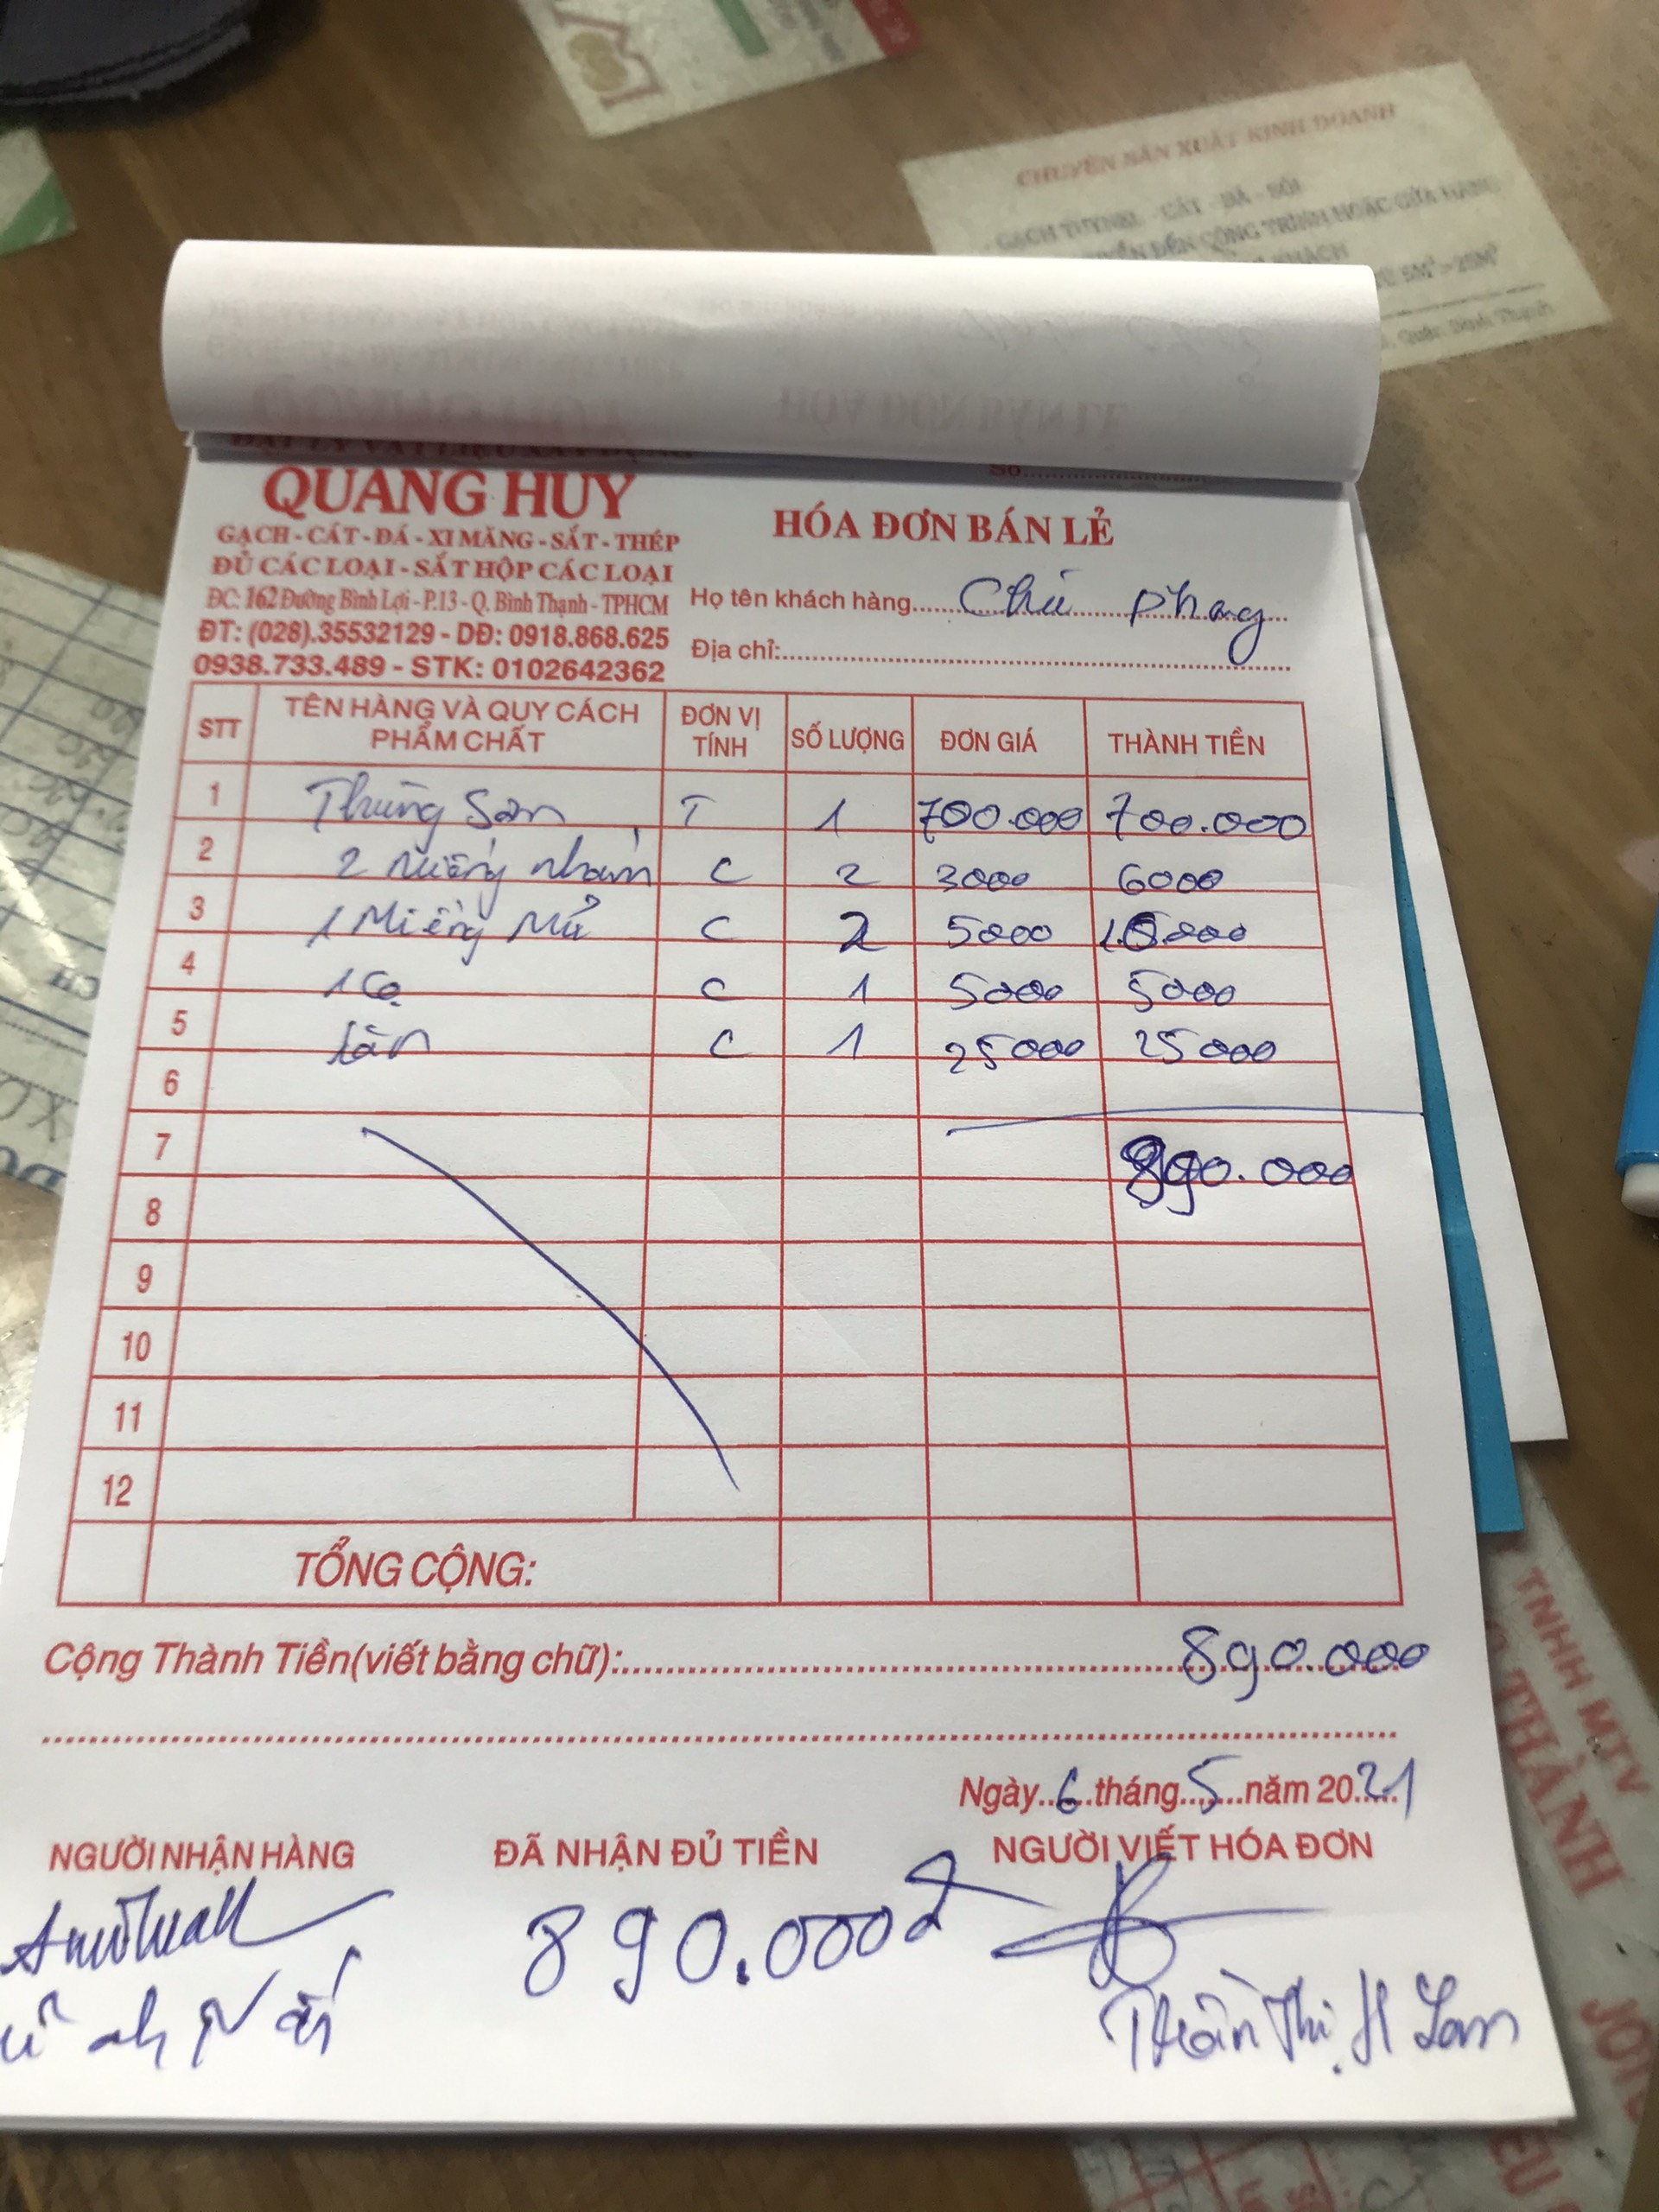 CHUYÊN SẢN XUẤT KINH DOANH
GẠCH TUYNEL - CÁT - ĐÁ - SỎI
ĐẾN CÔNG TRÌNH HOẶC CỬA HÀNG
KHÁCH
5M³ - 25M³
Quận Bình Thạnh
ĐẠI LÝ VẬT LIỆU XÂY DỰNG
Số
QUANG HUY
GẠCH - CÁT - ĐÁ - XI MĂNG - SẮT - THÉP
ĐỦ CÁC LOẠI - SẮT HỘP CÁC LOẠI
ĐC: 162 Đường Bình Lợi - P.13 - Q. Bình Thạnh - TPHCM
ĐT: (028).35532129 - DĐ: 0918.868.625
0938.733.489 - STK: 0102642362
HÓA ĐƠN BÁN LẺ
Họ tên khách hàng Chú Phong
Địa chỉ:
STT TÊN HÀNG VÀ QUY CÁCH PHẨM CHẤT ĐƠN VỊ TÍNH SỐ LƯỢNG ĐƠN GIÁ THÀNH TIỀN
1 Thùng Sơn T 1 700.000 700.000
2 2 Miếng nhám C 2 3000 6000
3 1 Miếng Mủ C 2 5000 10.000
4 1 Cọ C 1 5000 5000
5 lăn C 1 25000 25000
6
7 890.000
8
9
10
11
12
TỔNG CỘNG:
Cộng Thành Tiền(viết bằng chữ): 890.000
Ngày 6 tháng 5 năm 2021
NGƯỜI NHẬN HÀNG ĐÃ NHẬN ĐỦ TIỀN NGƯỜI VIẾT HÓA ĐƠN
890.000đ
Trần Thị H Lam
TNHH MTV
THÀNH